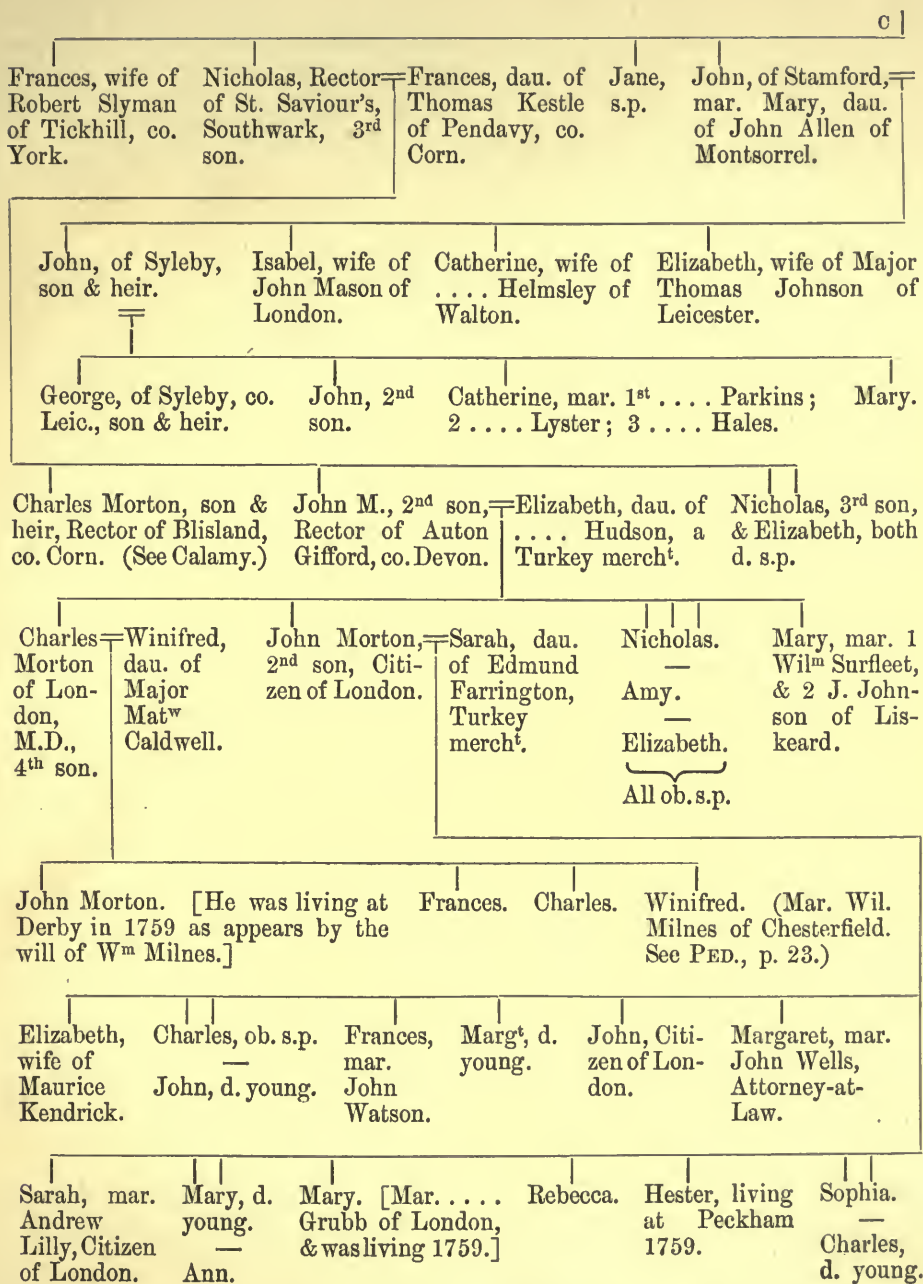 C
Frances, wife of
Robert Slyman
of Tickhill, co.
York.
Nicholas, Rector
of St. Saviour's,
Southwark, 3rd
son.
Frances, dau. of
Thomas Kestle
of Pendavy, co.
Corn.
Jane,
s.p.
John, of Stamford,
mar. Mary, dau.
of John Allen of
Montsorrel.
John, of Syleby,
son & heir.
Isabel, wife of
John Mason of
London.
Catherine, wife of
.... Helmsley of
Walton.
Elizabeth, wife of Major
Thomas Johnson of
Leicester.
George, of Syleby, co.
Leic., son & heir.
John, 2nd
son.
Catherine, mar. 1st .... Parkins;
2 .... Lyster; 3 .... Hales.
Mary.
Charles Morton, son &
heir, Rector of Blisland,
co. Corn. (See Calamy.)
John M., 2nd son,
Rector of Auton
Gifford, co. Devon.
Elizabeth, dau. of
.... Hudson, a
Turkey mercht.
Nicholas, 3rd son,
& Elizabeth, both
d. s.p.
Charles
Morton
of Lon-
don,
M.D.,
4th son.
Winifred,
dau. of
Major
Matw
Caldwell.
John Morton,
2nd son, Citi-
zen of London.
Sarah, dau.
of Edmund
Farrington,
Turkey
mercht.
Nicholas.
—
Amy.
—
Elizabeth.
All ob. s.p.
Mary, mar. 1
Wilm Surfleet,
& 2 J. John-
son of Lis-
keard.
John Morton. [He was living at
Derby in 1759 as appears by the
will of Wm Milnes.]
Frances.
Charles.
Winifred. (Mar. Wil.
Milnes of Chesterfield.
See PED., p. 23.)
Elizabeth,
wife of
Maurice
Kendrick.
Charles, ob. s.p.
—
John, d. young.
Frances,
mar.
John
Watson.
Margt, d.
young.
John, Citi-
zen of Lon-
don.
Margaret, mar.
John Wells,
Attorney-at-
Law.
Sarah, mar.
Andrew
Lilly, Citizen
of London.
Mary, d.
young.
—
Ann.
Mary. [Mar. ....
Grubb of London,
& was living 1759.]
Rebecca.
Hester, living
at Peckham
1759.
Sophia.
—
Charles,
d. young.